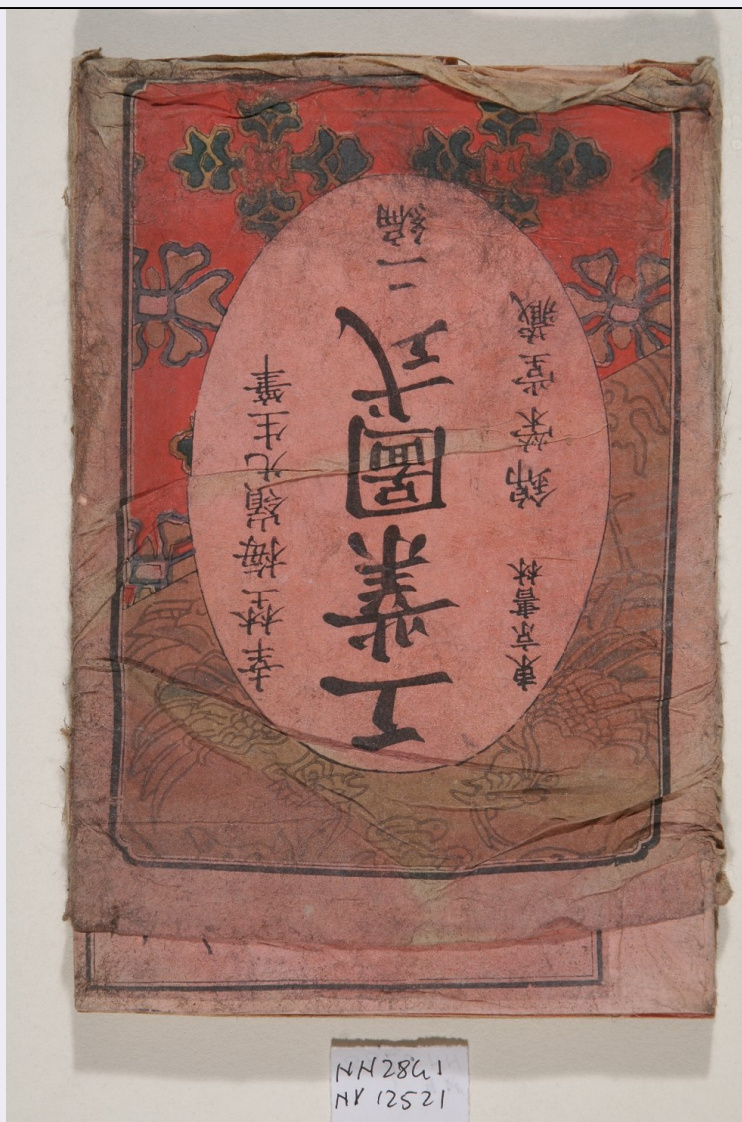 幸埜梅嶺先生筆
工業圖式 二編
東京書林 錦榮堂藏
NN2861
NV 12521